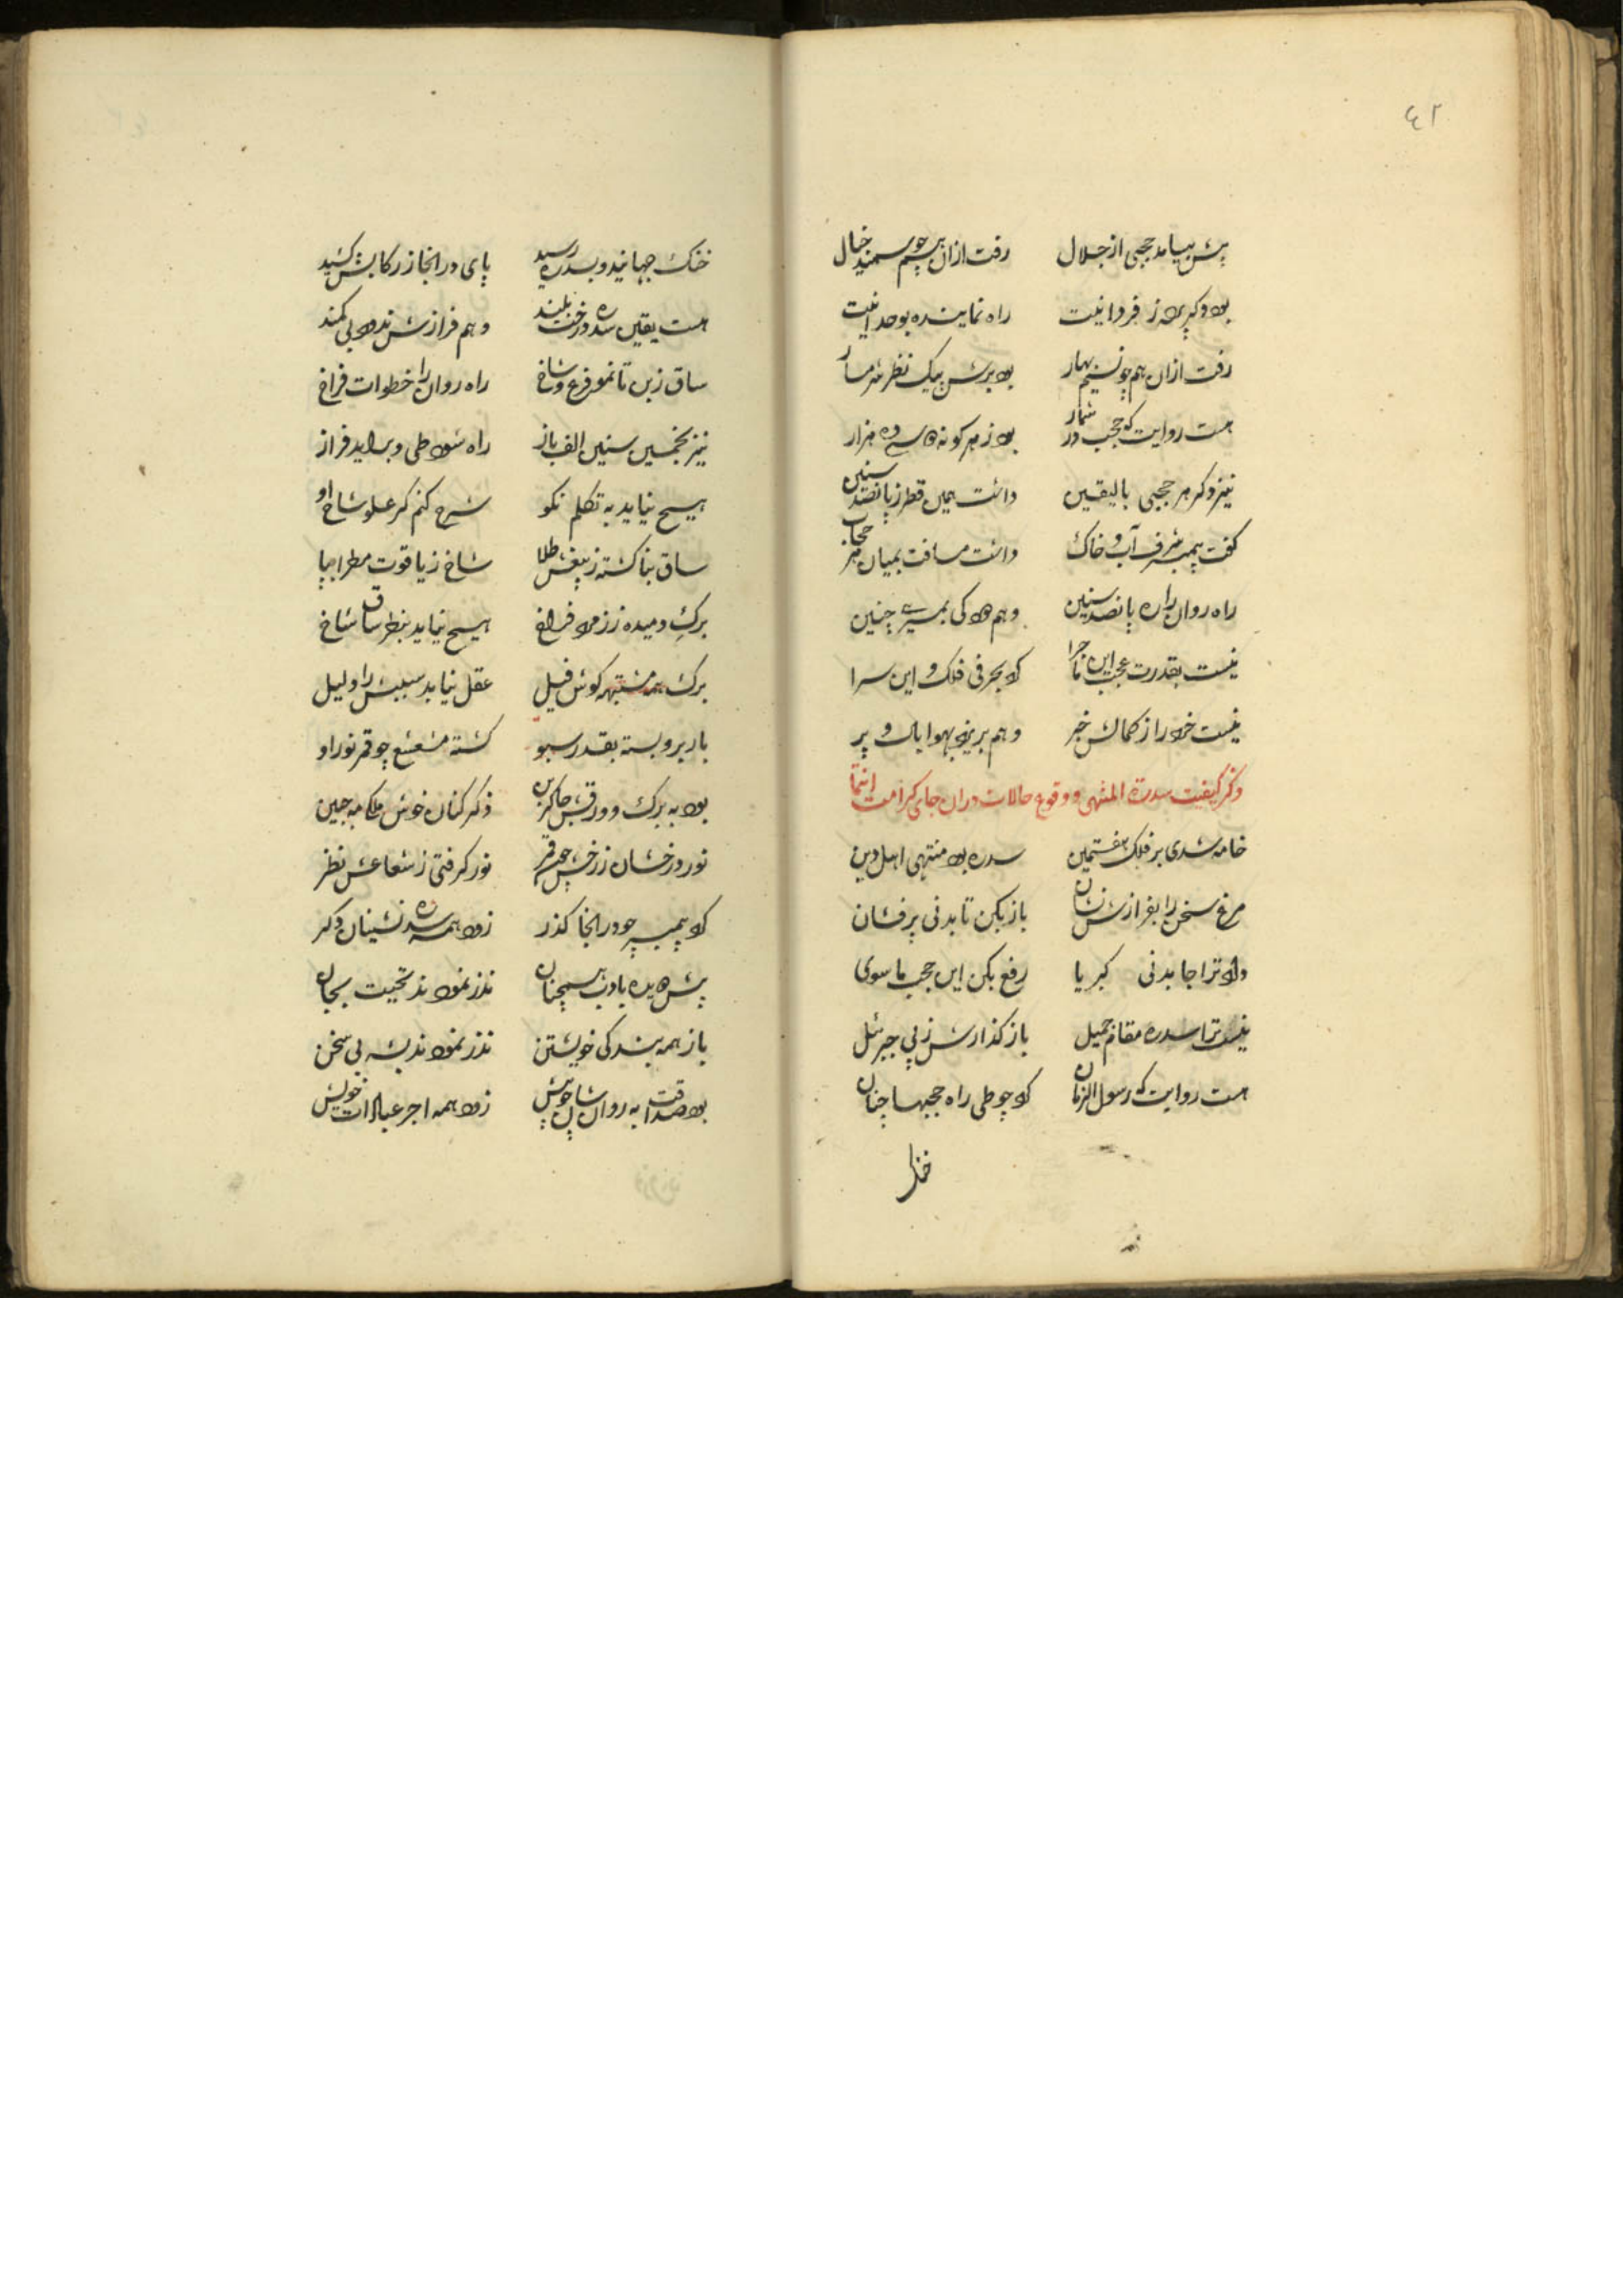 ٤٢
پیش بیامد حجبی از جلال رفت ازان هم چو سمند خیال
بود دکر پرده ز فردانیت راه نماینده بوحدانیت
رفت ازان هم چو نسیم بهار بود برش یک نظر
هست روایت که حجب در شمار بود ز هر کونه ده و سه هزار
نیز دکر هر حجبی بالیقین داشت همین قطر ز پانصد سنین
کفت پیمبر شرف آب و خاک داشت مسافت بمیان هر حجاب
راه روان را ره پانصد سنین وهم دهد کی بمسیری چنین
نیست بقدرت عجب این ماجرا که بحرفی فلک و این سرا
نیست خرد را ز کمالش خبر وهم بریزد بهوا بال و پر
ذکر کیفیت سدرة المنتهی و وقوع حالات دران جای کرامت انتما
خامه شدی بر فلک هفتمین سدره بود منتهی اهل دین
مرغ سخن را بفرازش نشان باز بکن تا بدنی پرفشان
داد ترا جا بدنی کبریا رفع بکن این حجب ماسوی
نیست ترا سدره مقام جمیل باز کذارش ز پی جبرئل
هست روایت که رسول الزمان که چو طی راه حجبها چنان
خنک
خنک جهانید و بسدره رسید پای در انجا ز رکابش کشید
هست یقین سدره درخت بلند وهم فرازش نرود بی کمند
ساق زبن تا نمو فرع و شاخ راه روان را خطوات فراخ
نیز بخمسین سنین الف باز راه شود طی و براید فراز
هیچ نیاید به تکلم نکو شرح کنم کر علو شاخ او
ساق بنا کشته ز بیغش طلا شاخ ز یاقوت مطرا بپا
برک دمیده ز زمرد فراخ هیچ نیاید بنظر ساق شاخ
برک همه مشتبهه کوش فیل عقل نیابد سببش را دلیل
بار برو بسته بقدر سبو کشته مشعشع چو قمر نور او
بود به برک و ورقش جاکزین ذکر کنان خوش ملک مه جبین
نور درخشان ز رخش چون قمر نور کرفتی ز شعاعش نظر
که پیمبر چو در انجا کذر زود همه سدره نشینان دکر
پیش دویده بادب همچنان نذر نمودند تحیت بجان
باز همه بندکی خویشتن نذر نمودند بشه بی سخن
زود همه اجر عبادات خویش